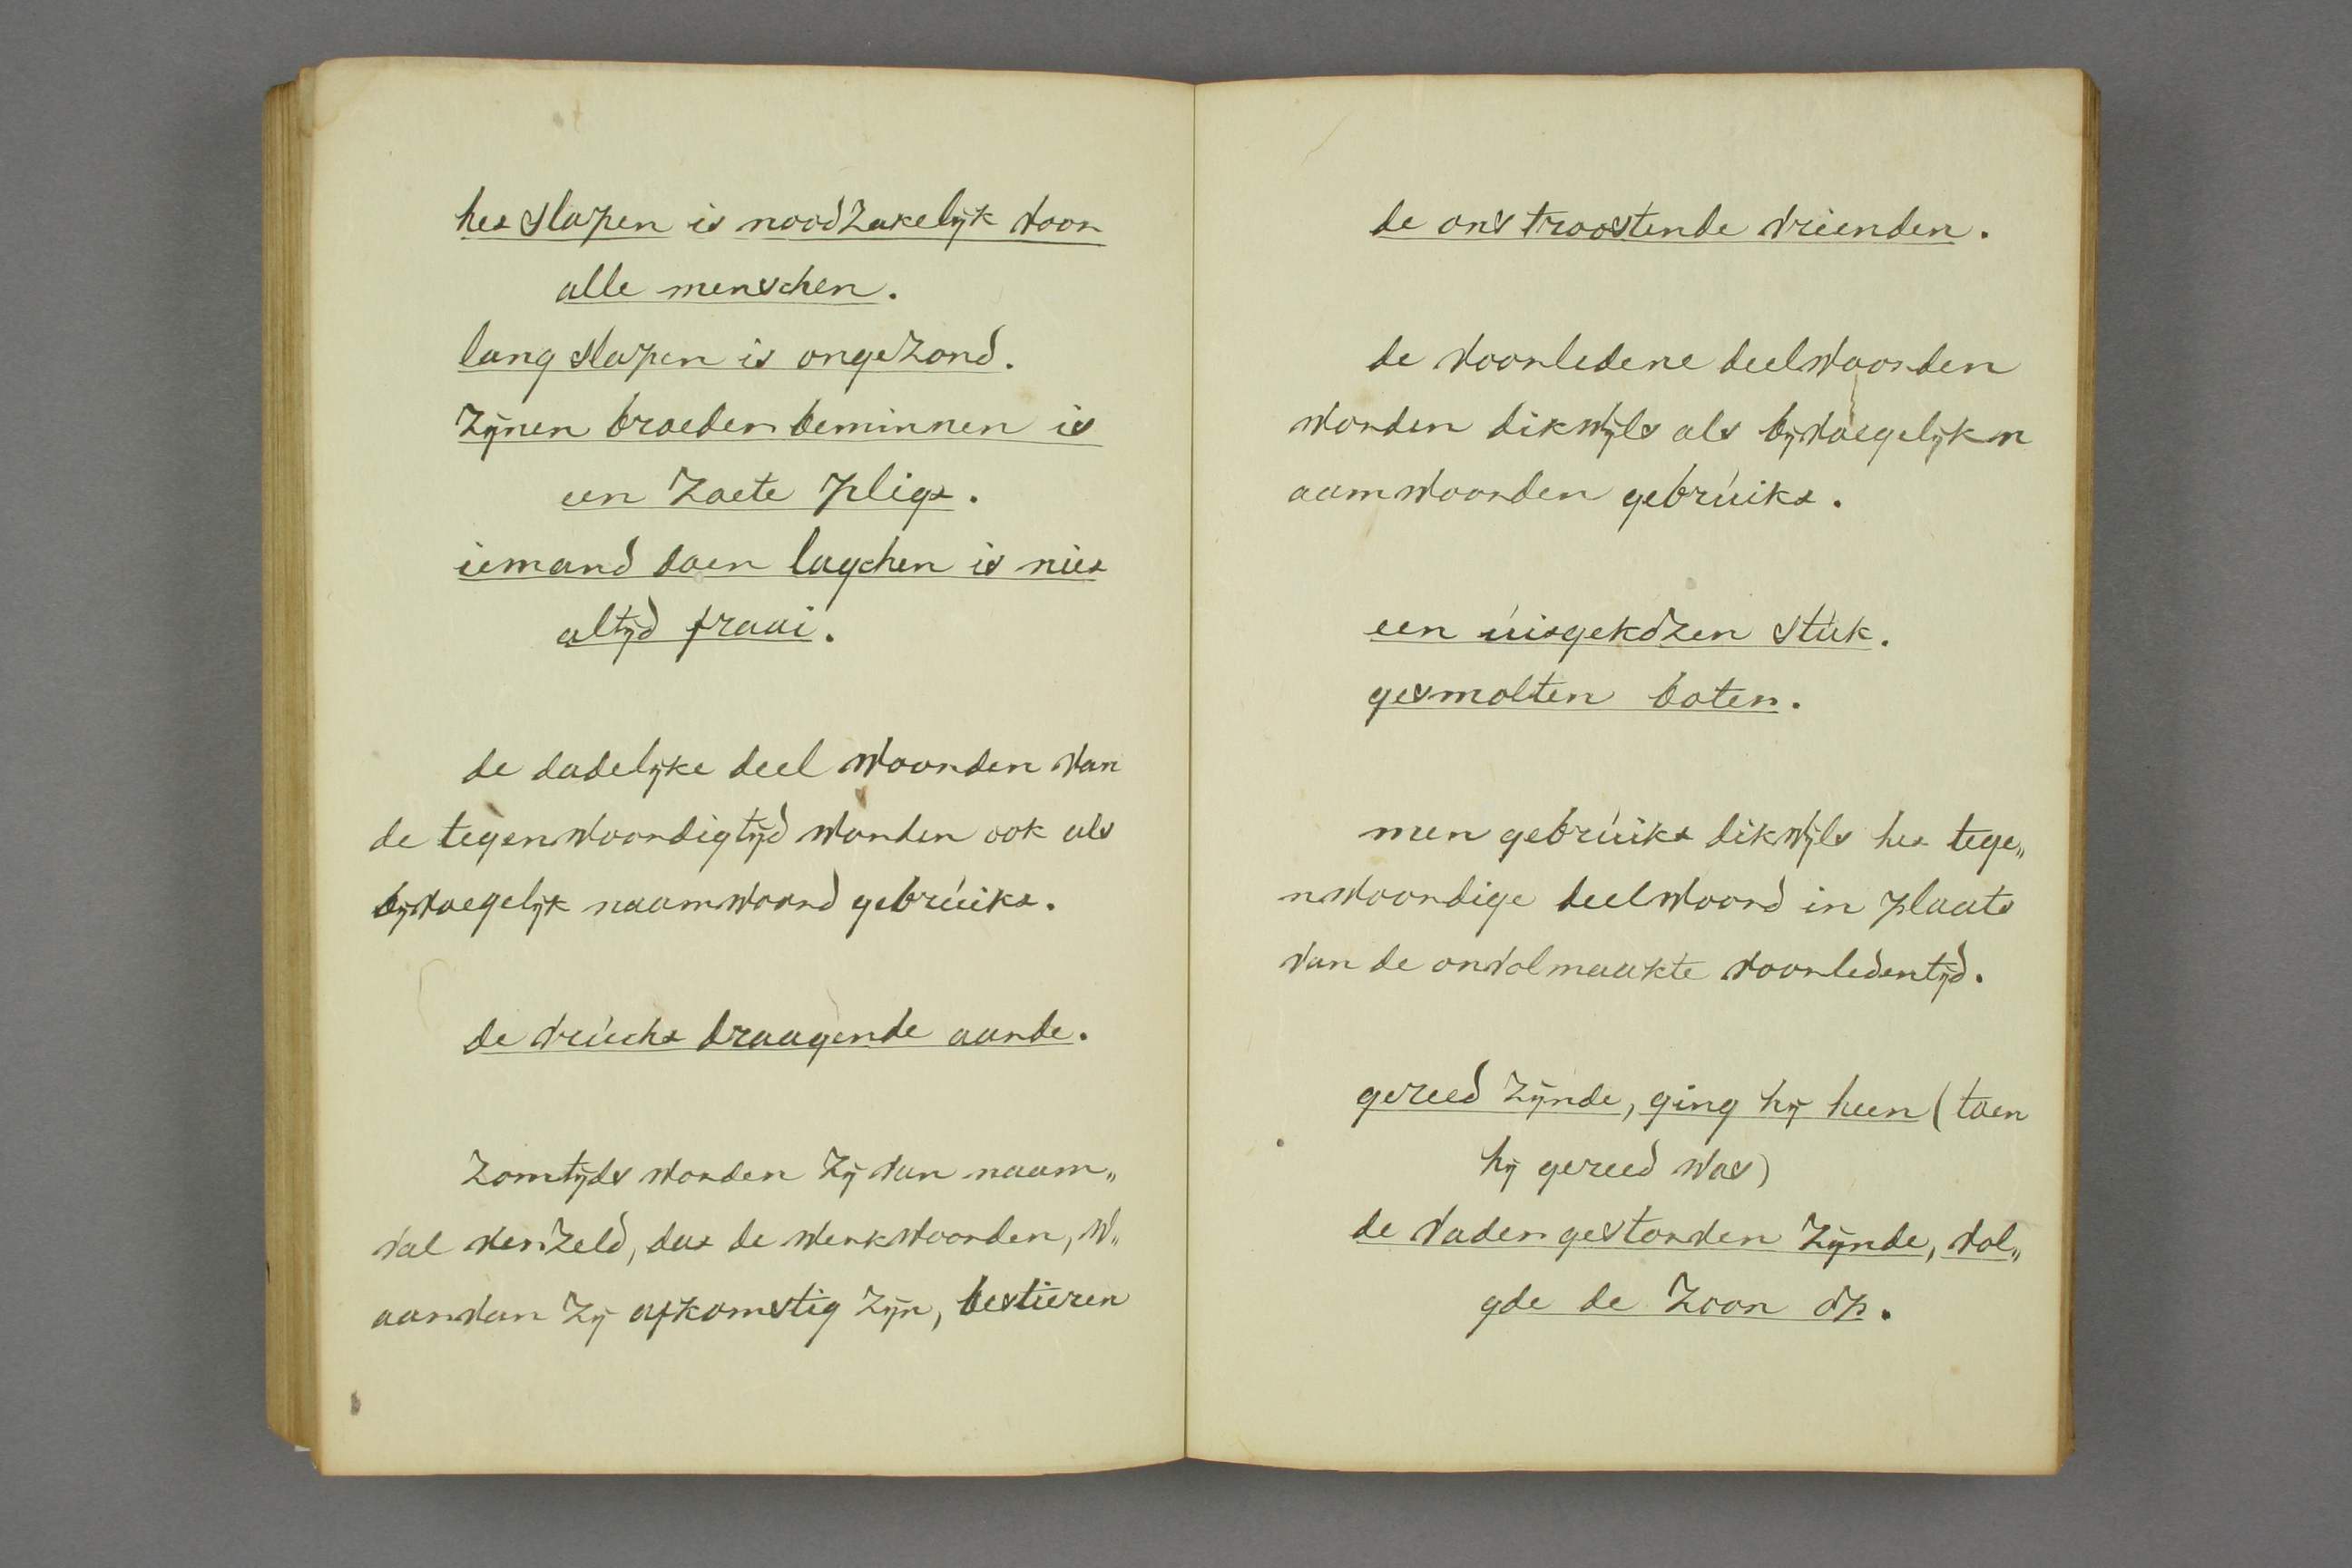 het slapen is noodzakelijk voor
alle menschen.
lang slapen is ongezond.
Zijnen broeder beminnen is
een zoete pligt.
iemand doen lagchen is niet
altijd fraai.
de dadelijke deel woorden van
de tegenwoordigtijd worden ook als
bijvoegelijk naamwoord gebruikt.
de vrucht draagende aarde.
Zomtijds worden zij van naam„
val verzeld, dat de werkwoorden, w„
aarvan zij afkomstig zijn, bestieren
de ons troostende vrienden.
de voorledene deelwoorden
worden dikwijls als bijvoegelijk n
aamwoorden gebruikt.
een uitgekozen stuk.
gesmolten boter.
men gebruikt dikwijls het tege„
nwoordige deelwoord in plaats
van de onvolmaakte voorledentijd.
gereed zijnde, ging hij heen (toen
hij gereed was)
de vader gestorven zijnde, vol„
gde de zoon op.